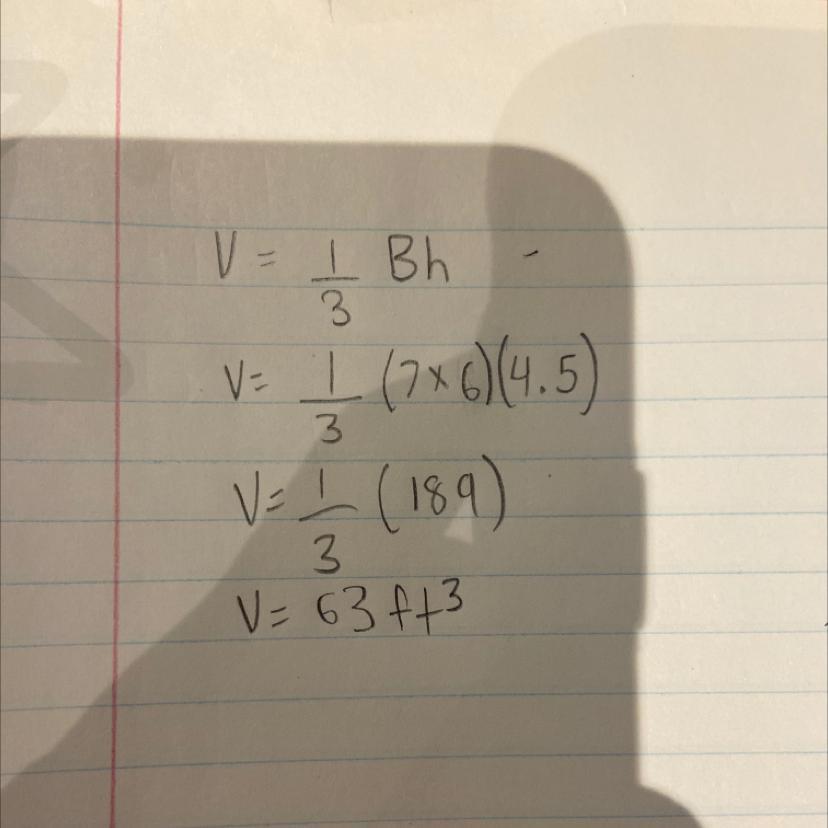 V = 1/3 Bh -
V= 1/3 (7×6)(4.5)
V= 1/3 (189)
V= 63 ft³